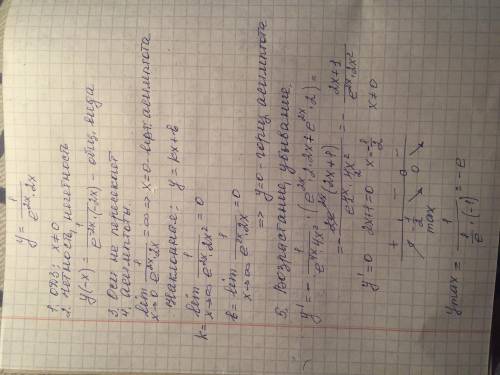 y = 1/(e^{2x}·2x)
1. ОДЗ: x≠0
2. Четность, нечетность
y(-x) = 1/(e^{-2x}·(-2x)) общ. вида
3. Оси не пересекает
4. Асимптоты.
lim x→0 1/(e^{2x}·2x) = ∞ => x=0 - верт. асимптота
Наклонная: y = kx+b
k = lim x→∞ 1/(e^{2x}·2x²) = 0
b = lim x→∞ 1/(e^{2x}·2x) = 0
=> y=0 - гориз. асимптота
5. Возрастание, убывание.
y' = - 1/(e^{4x}·4x²) (e^{2x}·2·2x + e^{2x}·2) =
= - 2e^{2x}(2x+1)/(e^{4x}·4x²) = - (2x+1)/(e^{2x}·2x²)
y'=0 2x+1=0 x=-1/2 x≠0
+ - -
-1/2 0
max
y max = 1/(1/e·(-1)) = -e